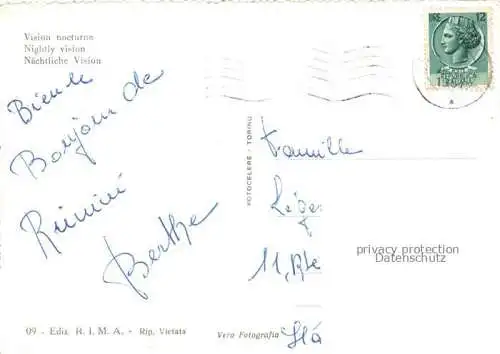 Vision nocturne
Nightly vision
Nächtliche Vision
Bonjour de
Rimini
Berthe
09 - Ediz. R. I. M. A. - Rip. Vietata
Vera Fotografia
FOTOCELERE - TORINO
12
Famille
11, Rte
privacy protection
Datenschutz